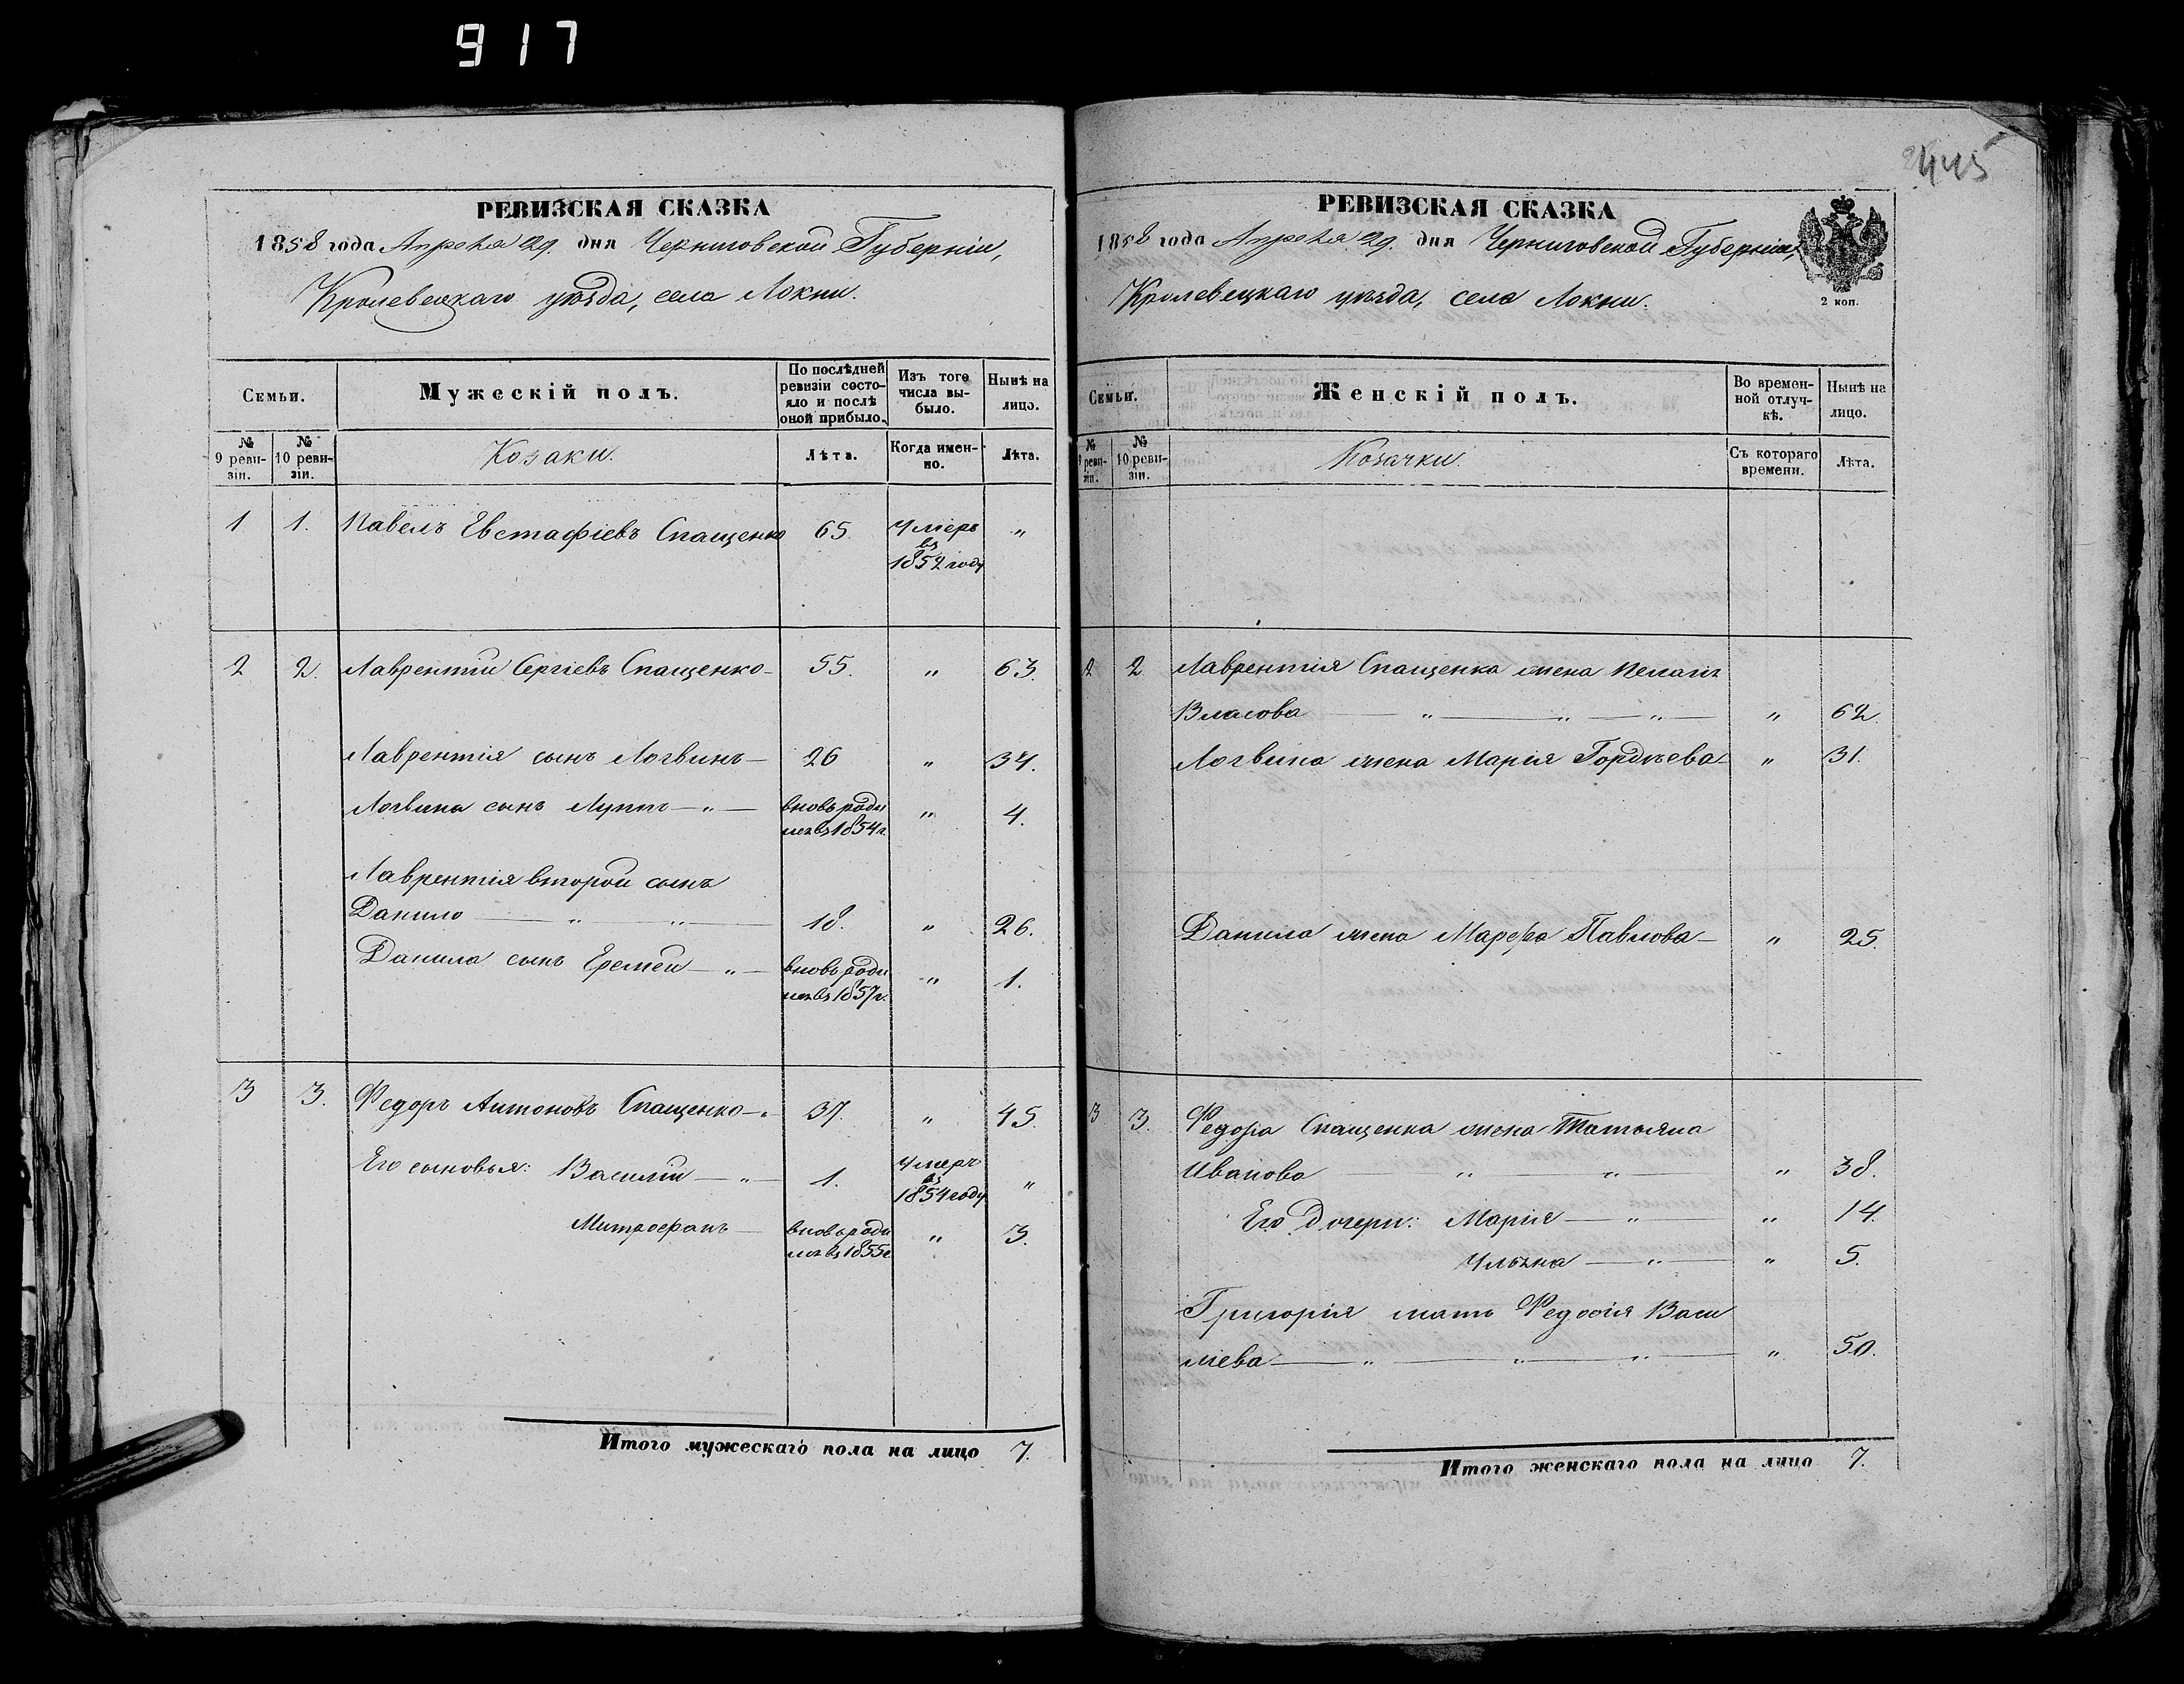 917
РЕВИЗСКАЯ СКАЗКА
1858 года Апреля 29. дня Черниговской Губерніи,
Кролевецкаго уѣзда, села Локни.
Семьи.
Мужескій полъ.
По послѣдней ревизіи состо-
яло и послѣ
оной прибыло.
Изъ того
числа вы-
было.
Нынѣ на
лицо.
№
9 реви-
зіи.
№
10 реви-
зіи.
Козаки.
Лѣта.
Когда имен-
но.
Лѣта.
1 1. Павелъ Евстафіевъ Спащенко 65. Умеръ въ 1852 году "
2 2. Лаврентій Сергіевъ Спащенко 55. " 63.
Лаврентія сынъ Логвинъ 26 " 34.
Логвина сынъ Луппъ " вновь роди
лся въ 1854 г. " 4.
Лаврентія второй сынъ
Данило " " 18. " 26.
Данила сынъ Еремей " вновь роди
лся въ 1857 г. " 1.
3 3. Федоръ Антоновъ Спащенко " 37. " 45.
Его сыновья: Василій " 1. Умеръ въ 1854 году "
Митрофанъ вновь роди
лся въ 1855 г. " 3.
Итого мужескаго пола на лицо 7.
445
РЕВИЗСКАЯ СКАЗКА
1858 года Апреля 29. дня Черниговской Губерніи,
Кролевецкаго уѣзда, села Локни.
2 коп.
Семьи.
Женскій полъ.
Во времен-
ной отлуч-
кѣ.
Нынѣ на
лицо.
№
9 реви-
зіи.
№
10 реви-
зіи.
Козачки.
Съ котораго
времени.
Лѣта.
2 2 Лаврентія Спащенка жена Пелагія
Власова " " " " 62.
Логвина жена Марія Гордѣева " 31.
Данила жена Марфа Павлова " 25.
3 3. Федора Спащенка жена Татьяна
Иванова " " " 38.
Его дочери: Марія " " 14.
Ульяна " " 5.
Григорія мать Федосія Васи
лиева " " " " 50.
Итого женскаго пола на лицо 7.